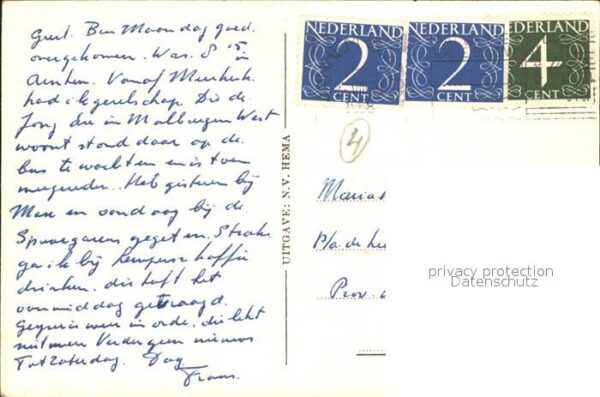 Geert. Ben Maandag goed.
overgekomen. Was 8 15 in
Arnhem. Vanaf Meerkerk
had ik gezelschap Die de
Jong die in Malburgen West
woont stond daar op de
bus te wachten en is toen
meegereden. Heb gisteren bij
Max en vandaag bij de
Spaargarens gegeten. Straks
ga ik bij Kempers koffie
drinken. die heeft het
vanmiddag gevraagd.
Geyser is weer in orde. die lekt
niet meer Verder geen nieuws
Tot Zaterdag. Dag
Frans.
UITGAVE: N.V. HEMA
NEDERLAND
2
CENT
NEDERLAND
2
CENT
NEDERLAND
4
CENT
4
Marias
P/a de
Prov.
privacy protection
Datenschutz